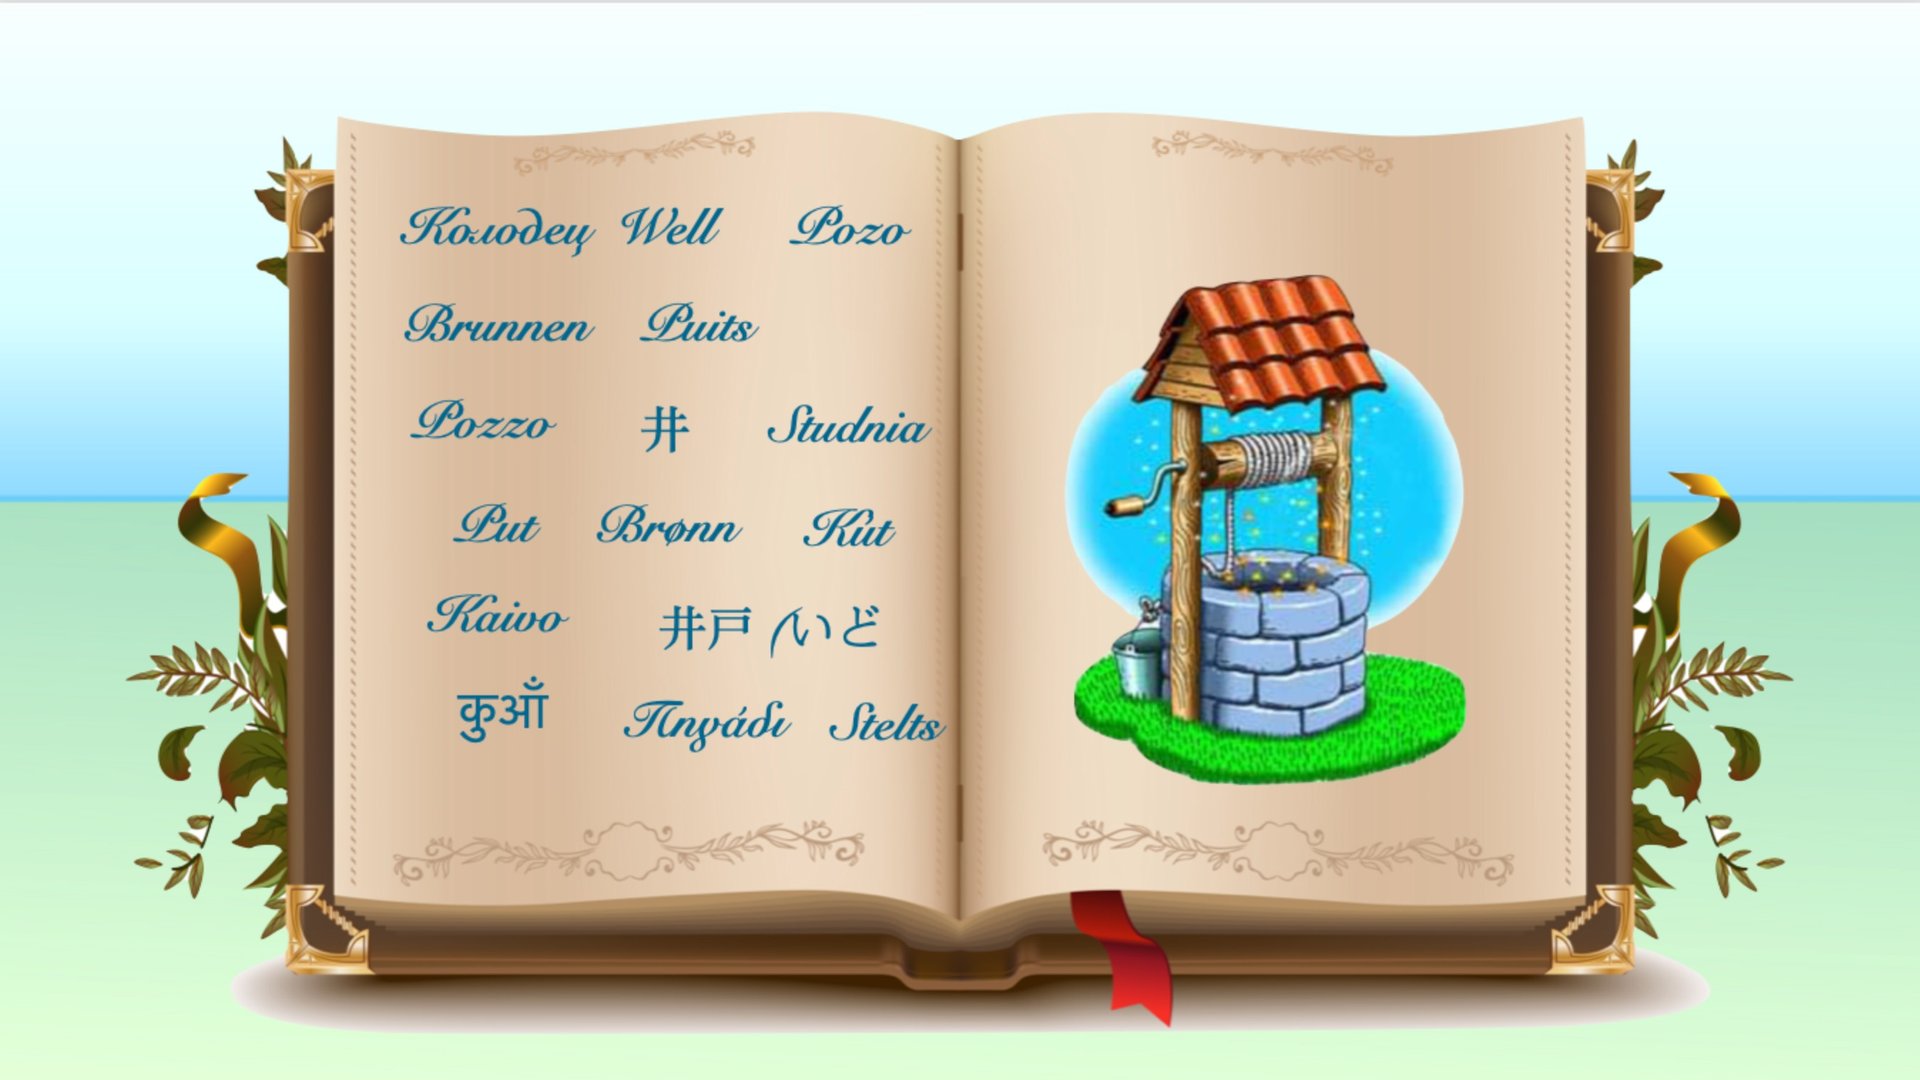 Колодец Well Pozo
Brunnen Puits
Pozzo 井 Studnia
Put Brønn Kút
Kaivo 井戸 (いど
कुआँ Πηγάδι Stelts